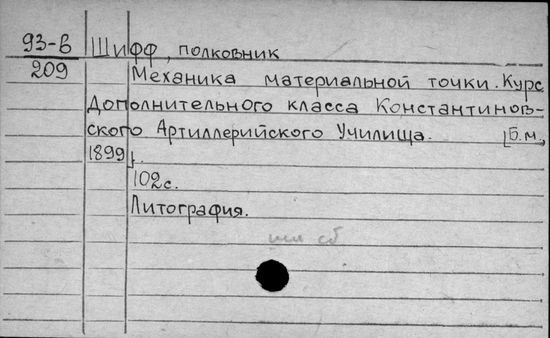 93-В Шифф, полковник
209 Механика материальной точки. Курс
Дополнительного класса Константинов-
ского Артиллерийского Училища. [Б.м.,
1899].
102с.
Литография.